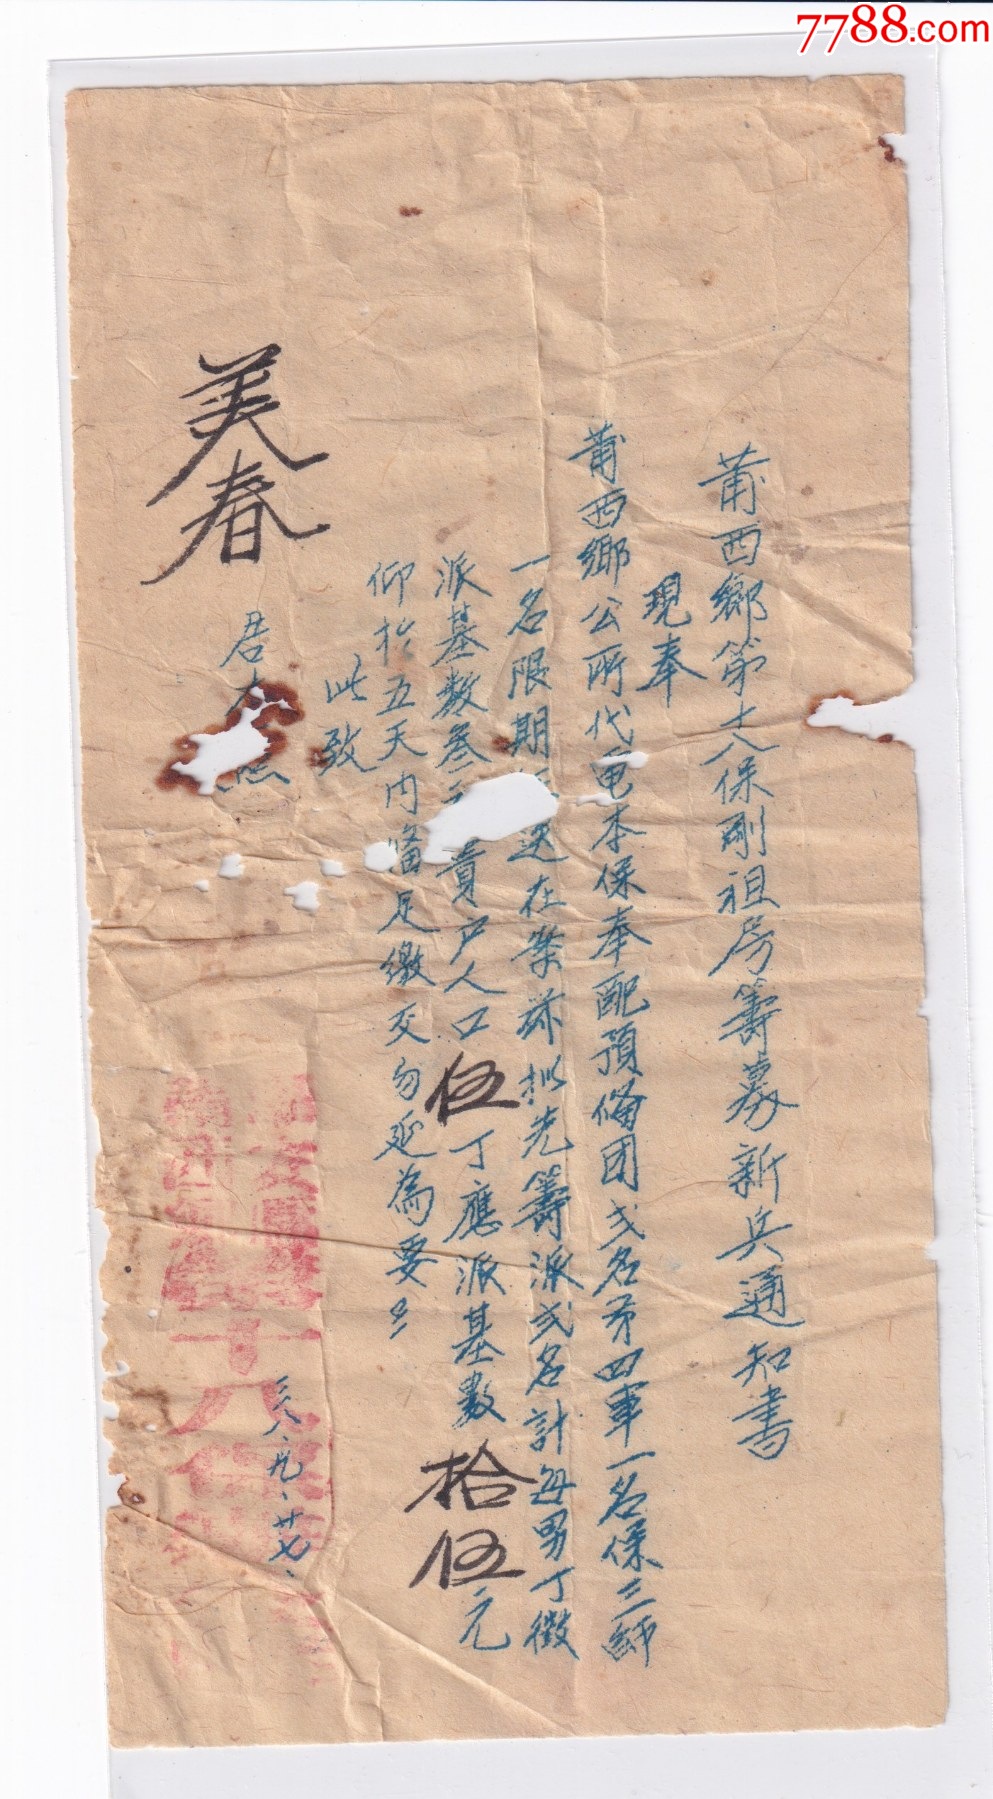 7788.com
莆西鄉第十八保剛祖房籌募新兵通知書
現奉
莆西鄉公所代電本保奉配預備团弍名第四軍一名保三師
一名限期送在案茲拟先籌派弍名計每男丁徵
派基数叁元貴户人口伍丁應派基數拾伍元
仰於五天内備足繳交勿延為要
此致
美春
君
卅八.九.廿七.
十八保